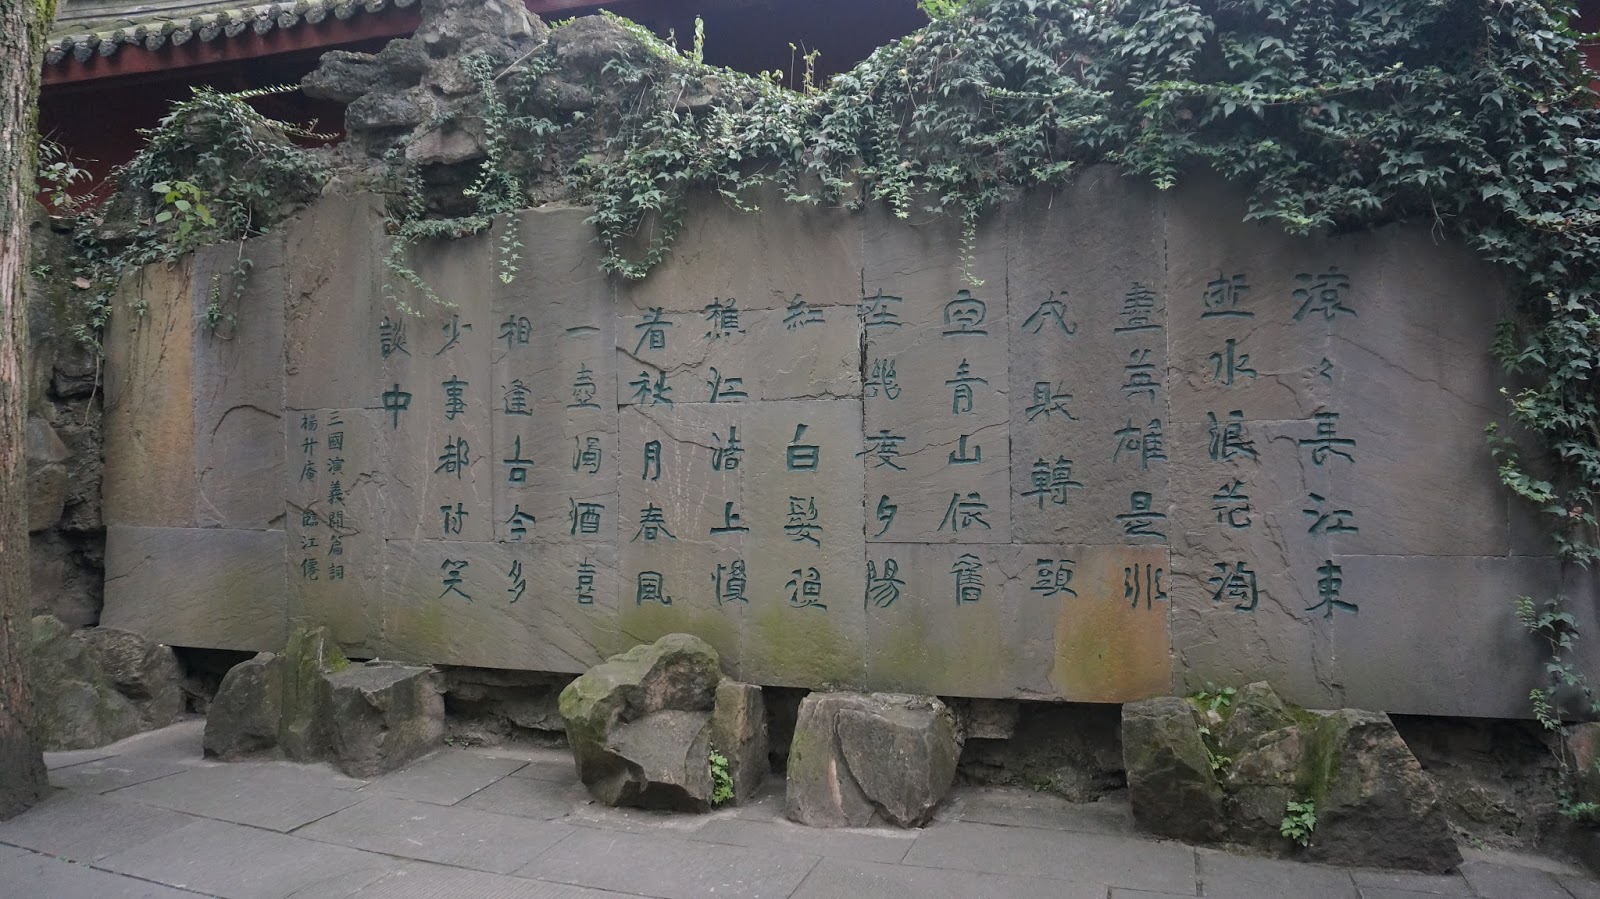 滾々長江東
逝水浪花淘
盡英雄是非
成敗轉頭
空青山依舊
在幾度夕陽
紅 白髮漁
樵江渚上慣
看秋月春風
一壺濁酒喜
相逢古今多
少事都付笑
談中
三國演義開篇詞
楊升庵 臨江僊